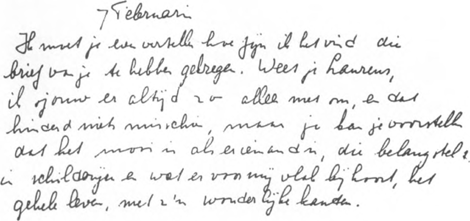 7 Februari
Ik moet je even vertellen hoe fijn ik het vind die
brief van je te hebben gekregen. Weet je Laurens,
ik sjouw er altijd zo alleen mee om, en dat
hinderd niets misschien, maar je kan je voorstellen
dat het mooi is als er iemand is, die belang stelt
in schilderijen en wat er voor mij vlak bij hoort, het
gehele leven, met z'n wonderlijke kanten.